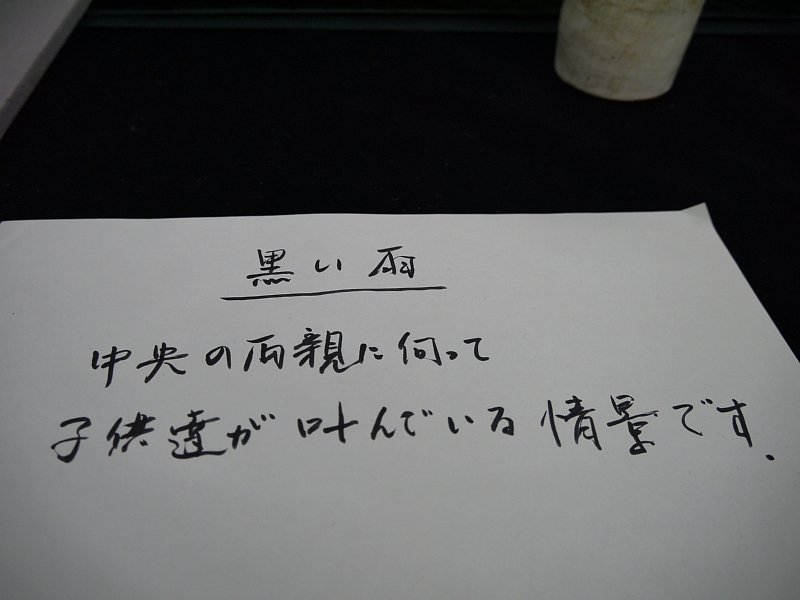 黒い雨
中央の両親に向って
子供達が叫んでいる情景です.